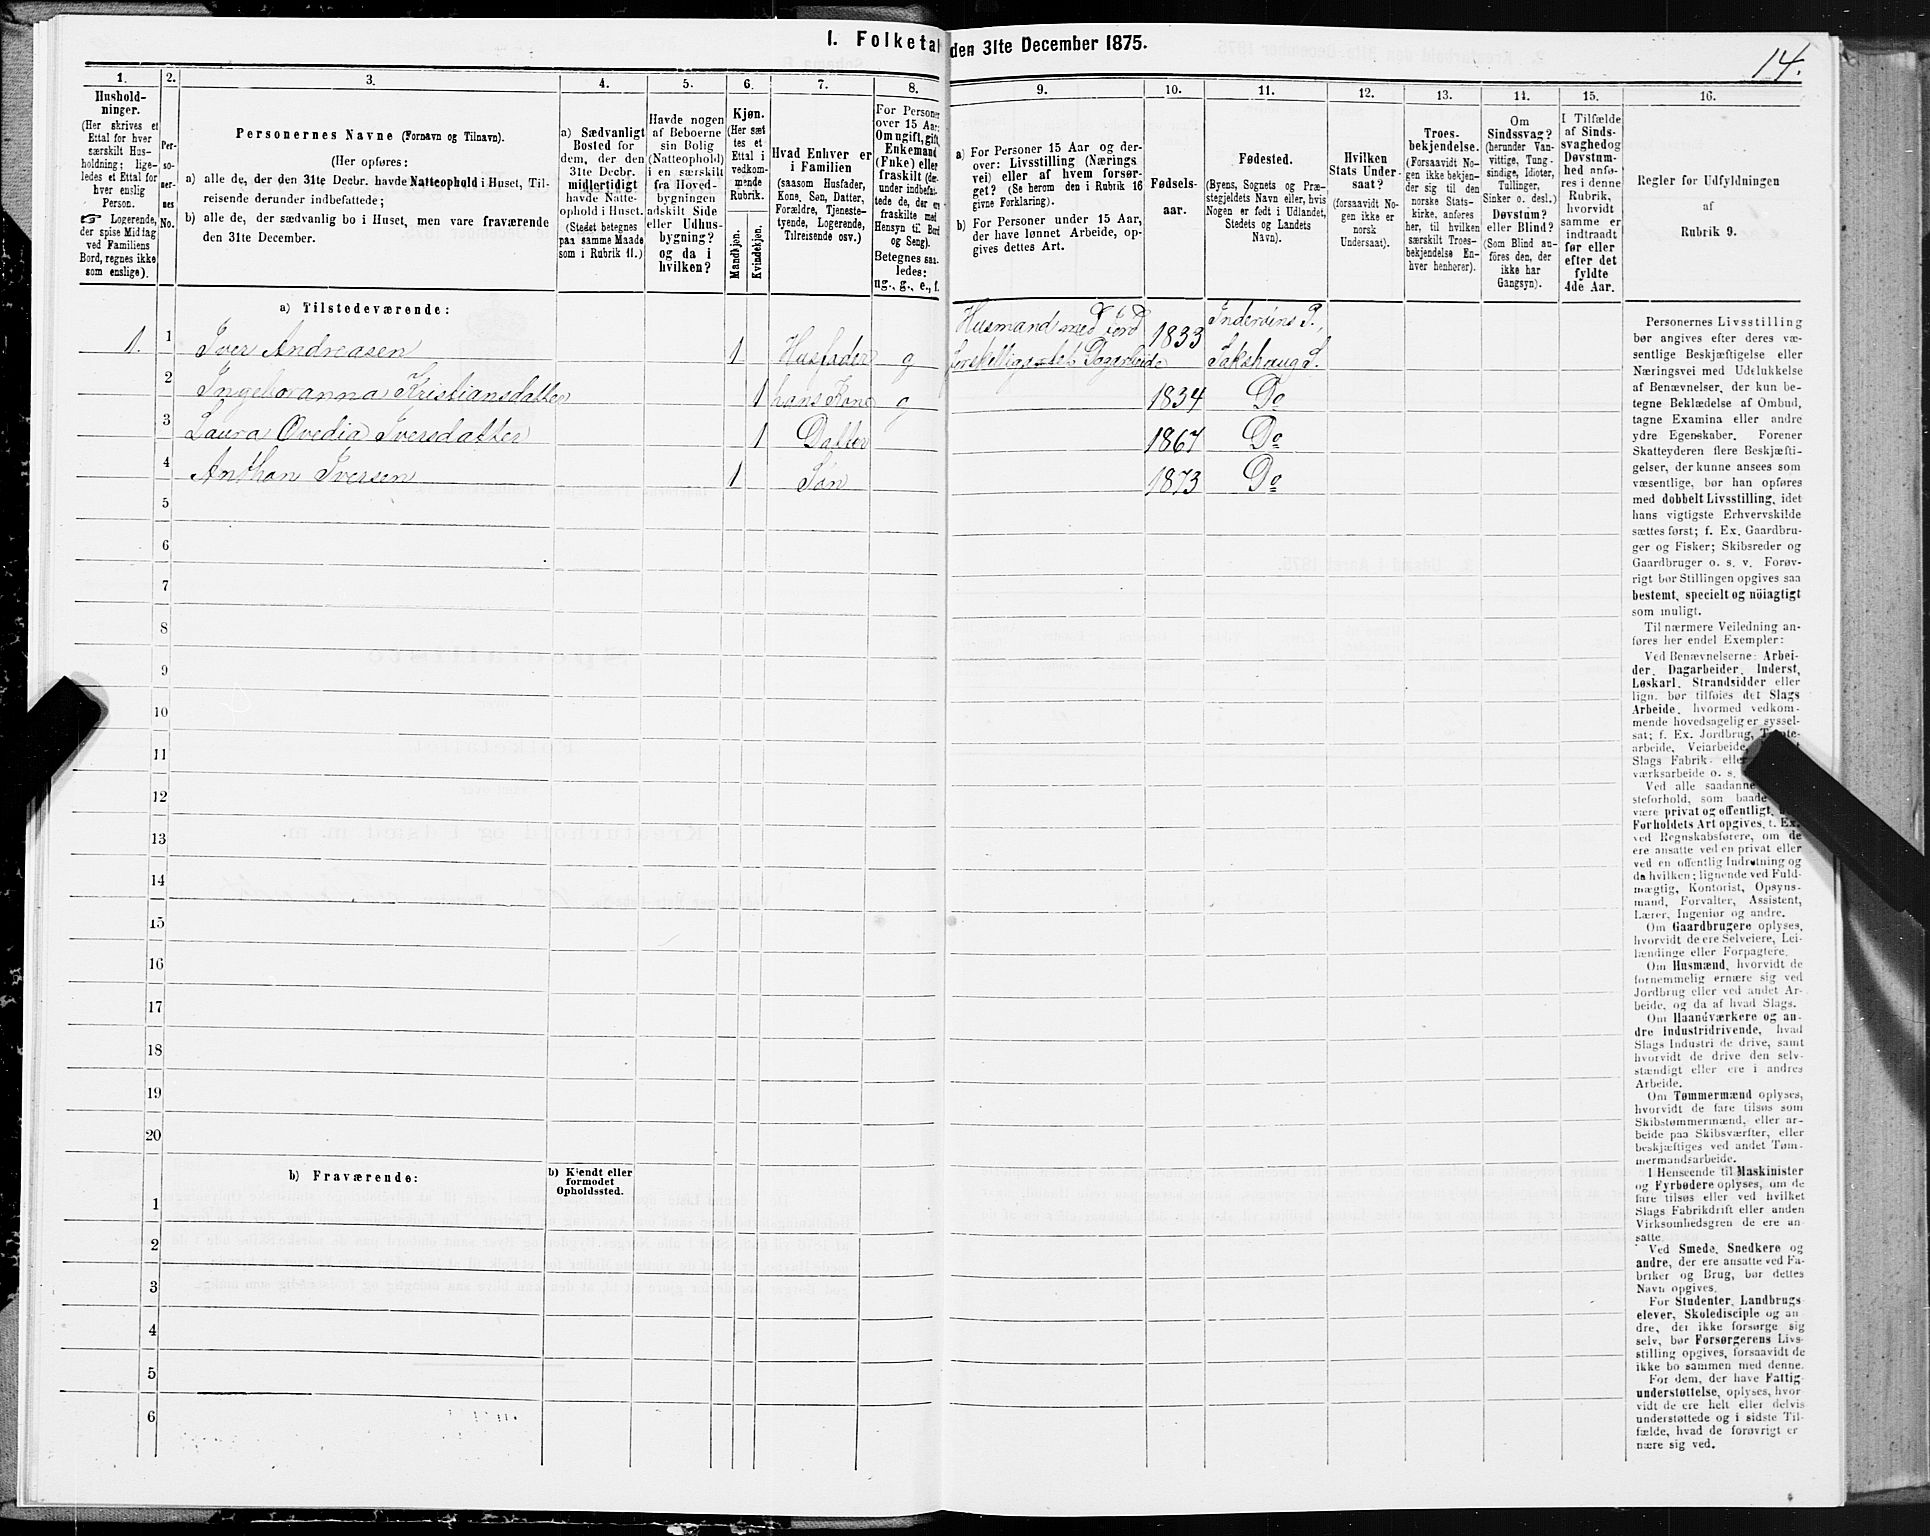 I. Folketal den 31te December 1875.
14.
1.
Hushold-
ninger.
(Her skrives et
Ettal for hver
særskilt Hus-
holdning; lige-
ledes et Ettal for
hver enslig
Person.
☞ Logerende,
der spise Middag
ved Familiens
Bord, regnes ikke
som enslige).
2.
Per-
so-
ner-
nes
No.
3.
Personernes Navne (Fornavn og Tilnavn).
(Her opføres:
a) alle de, der den 31te Decbr. havde Natteophold i Huset, Til-
reisende derunder indbefattede;
b) alle de, der sædvanlig bo i Huset, men vare fraværende
den 31te December.
4.
a) Sædvanligt
Bosted for
dem, der den
31te Decbr.
midlertidigt
havde Natte-
ophold i Huset.
(Stedet betegnes
paa samme Maade
som i Rubrik 11.)
5.
Havde nogen
af Beboerne
sin Bolig
(Natteophold)
i en særskilt
fra Hoved-
bygningen
adskilt Side
eller Udhus-
bygning?
og da i
hvilken?
6.
Kjøn.
(Her sæt
tes et
Ettal i
vedkom-
mende
Rubrik.
Mandkjøn.
Kvindekjøn.
7.
Hvad Enhver er
i Familien
(saasom Husfader,
Kone, Søn, Datter,
Forældre, Tjeneste-
tyende, Logerende,
Tilreisende osv.)
8.
For Personer
over 15 Aar:
Om ugift, gift,
Enkemand
(Enke) eller
fraskilt (der-
under indbefat-
tede de, der ere
fraskilte med
Hensyn til Bord
og Seng).
Betegnes saa-
ledes:
ug., g., e., f.
9.
a) For Personer 15 Aar og der-
over: Livsstilling (Nærings
vei) eller af hvem forsør-
get? (Se herom den i Rubrik 16
givne Forklaring).
b) For Personer under 15 Aar,
der have lønnet Arbeide, op-
gives dettes Art.
10.
Fødsels-
aar.
11.
Fødested.
(Byens, Sognets og Præ-
stegjeldets Navn eller, hvis
Nogen er født i Udlandet,
Stedets og Landets
Navn).
12.
Hvilken
Stats Under-
saat?
(forsaavidt No-
gen ikke er
norsk
Undersaat).
13.
Troes-
bekjendelse.
(Forsaavidt No-
gen ikke bekjen-
der sig til den
norske Stats-
kirke, anføres
her, til hvilken
særskilt Troes-
bekjendelse En-
hver henhører).
14.
Om
Sindssvag?
(herunder Van-
vittige, Tung-
sindige, Idioter,
Tullinger,
Sinker o. desl.)
Døvstum?
eller Blind?
(Som Blind an-
føres den, der
ikke har
Gangsyn).
15.
I Tilfælde
af Sinds-
svaghed og
Døvstum-
hed anfø-
res i denne
Rubrik,
hvorvidt
samme er
indtraadt
før eller
efter det
fyldte
4de Aar.
16.
Regler for Udfyldningen
af
Rubrik 9.
a) Tilstedeværende:
1. 1 Iver Andreasen 1 Husfader g Husmand med Jord forskelligt Dagarbeide 1833 Inderøens P., Sakshaug S.
2 Ingeboranna Kristiansdatter 1 hans Kone g 1834 Do
3 Laura Ovedia Iversdatter 1 Datter 1867 Do
4 Anthon Iversen 1 Søn 1873 Do
5
6
7
8
9
10
11
12
13
14
15
16
17
18
19
20
b) Fraværende:
b) Kjendt eller
formodet
Opholdssted.
1
2
3
4
5
6
Personernes Livsstilling
bør angives efter deres væ-
sentlige Beskjæftigelse eller
Næringsvei med Udelukkelse
af Benævnelser, der kun be-
tegne Beklædelse af Ombud,
tagne Examina eller andre
ydre Egenskaber. Forener
Skatteyderen flere Beskjæfti-
gelser, der kunne ansees som
væsentlige, bør han opføres
med dobbelt Livsstilling, idet
hans vigtigste Erhvervskilde
sættes først; f. Ex. Gaardbru-
ger og Fisker; Skibsreder og
Gaardbruger o. s. v. Forøv-
rigt bør Stillingen opgives saa
bestemt, specielt og nöiagtigt
som muligt.
Til nærmere Veiledning an-
føres her endel Exempler:
Ved Benævnelserne: Arbei-
der, Dagarbeider, Inderst,
Løskarl, Strandsidder eller
lign. bør tilføies det Slags
Arbeide, hvormed vedkom-
mende hovedsagelig er syssel-
sat; f. Ex. Jordbrug,
arbeide, Veiarbeide,
Slags Fabrik- eller
værksarbeide o. s.
Ved alle saadanne
steforhold, som baade
være privat og offentligt,
Forholdets Art opgives, t. Ex.
ved Regnskabsførere, om de
ere ansatte ved en privat eller
ved en offentlig Indretning og
da hvilken; lignende ved Fuld-
mægtig, Kontorist, Opsyns-
mand, Forvalter, Assistent,
Lærer, Ingeniør og andre.
Om Gaardbrugere oplyses,
hvorvidt de ere Selveiere, Lei-
lændinge eller Forpagtere.
Om Husmænd, hvorvidt de
fornemmelig ernære sig ved
Jordbrug eller ved andet Ar-
beide, og da af hvad Slags.
Om Haandværkere og an-
dre Industridrivende, hvad
Slags Industri de drive, samt
hvorvidt de drive den selv-
stændigt eller ere i andres
Arbeide.
Om Tømmermænd oplyses,
hvorvidt de fare tilsøs som
Skibstømmermænd, eller ar-
beide paa Skibsværfter, eller
beskjæftiges ved andet Tøm-
mermandsarbeide.
I Henseende til Maskinister
og Fyrbødere oplyses, om de
fare tilsøs eller ved hvilket
Slags Fabrikdrift eller anden
Virksomhedsgren de ere an-
satte.
Ved Smede, Snedkere og
andre, der ere ansatte ved Fa-
briker og Brug, bør dettes
Navn opgives.
For Studenter, Landbrugs-
elever, Skoledisciple og an
dre, der ikke forsørge sig
selv, bør Forsørgerens Livs-
stilling opgives, forsaavidt de
ikke bo sammen med denne.
For dem, der have Fattig-
understøttelse, oplyses, hvor-
vidt de ere helt eller delvis
understøttede og i sidste Til-
fælde, hvad de forøvrigt er
nære sig ved.